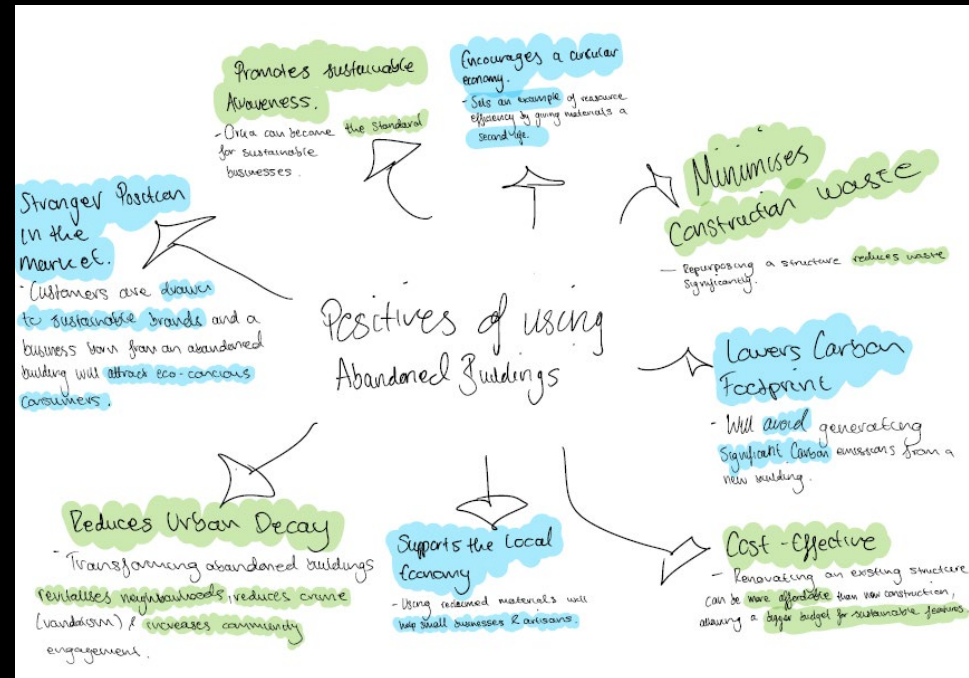 Positives of using
Abandoned Buildings
Promotes sustainable
Awareness.
- Orka can become the standard
for sustainable
businesses.
Encourages a circular
economy.
- Sets an example of reasource
efficiency by giving materials a
second life.
Minimises
Construction waste
- Repurposing a structure reduces waste
significantly.
Lowers Carbon
Footprint
- Will avoid generating
significant Carbon emissions from a
new building.
Cost-Effective
- Renovating an existing structure
can be more affordable than new construction,
allowing a bigger budget for sustainable features.
Supports the Local
Economy
- Using reclaimed materials will
help small businesses & artisans.
Reduces Urban Decay
- Transforming abandoned buildings
revitalises neighbourhoods, reduces crime
(vandalism) & increases community
engagement.
Stronger Position
in the
market.
- Customers are drawn
to sustainable brands and a
business born from an abandoned
building will attract eco-concious
consumers.